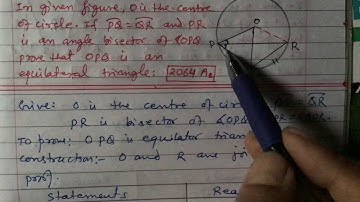 In given figure, O is the centre
of circle. If PQ = QR and PR
is an angle bisector of ∠OPQ
prove that OPQ is an
equilateral triangle. 2064
O
P
R
Give: O is the centre of circle, QR
PR is bisector of ∠OPQ
To prove: OPQ is equilater
construction:- O and R are
proof.
Statements
Rea